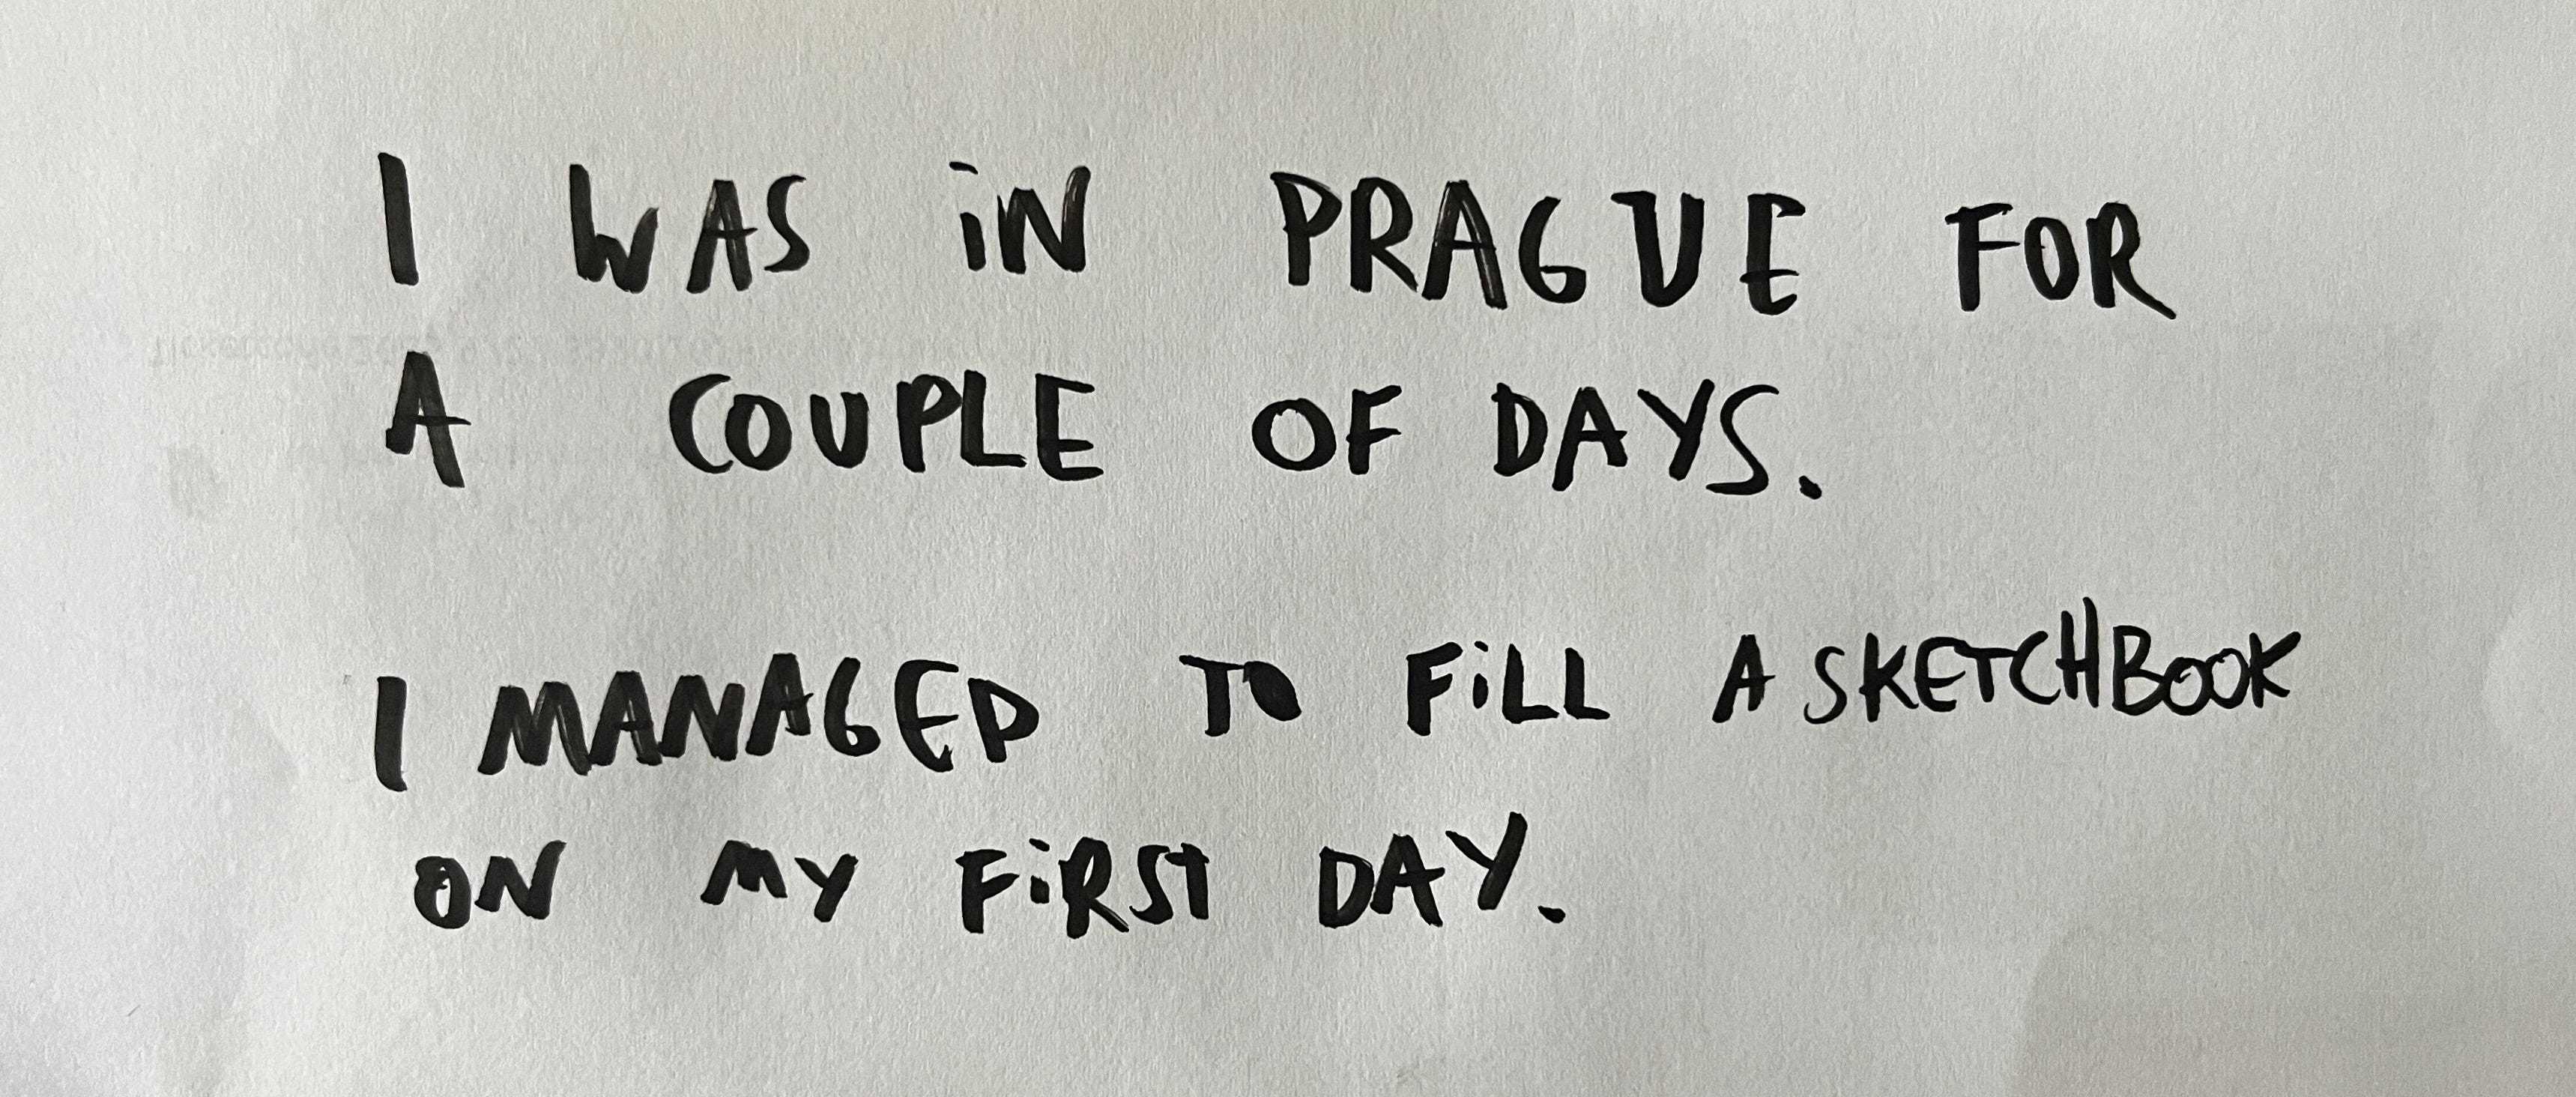 I WAS iN PRAGUE FOR
A COUPLE OF DAYS.
I MANAGED TO FiLL A SKETCHBOOK
ON MY FiRST DAY.